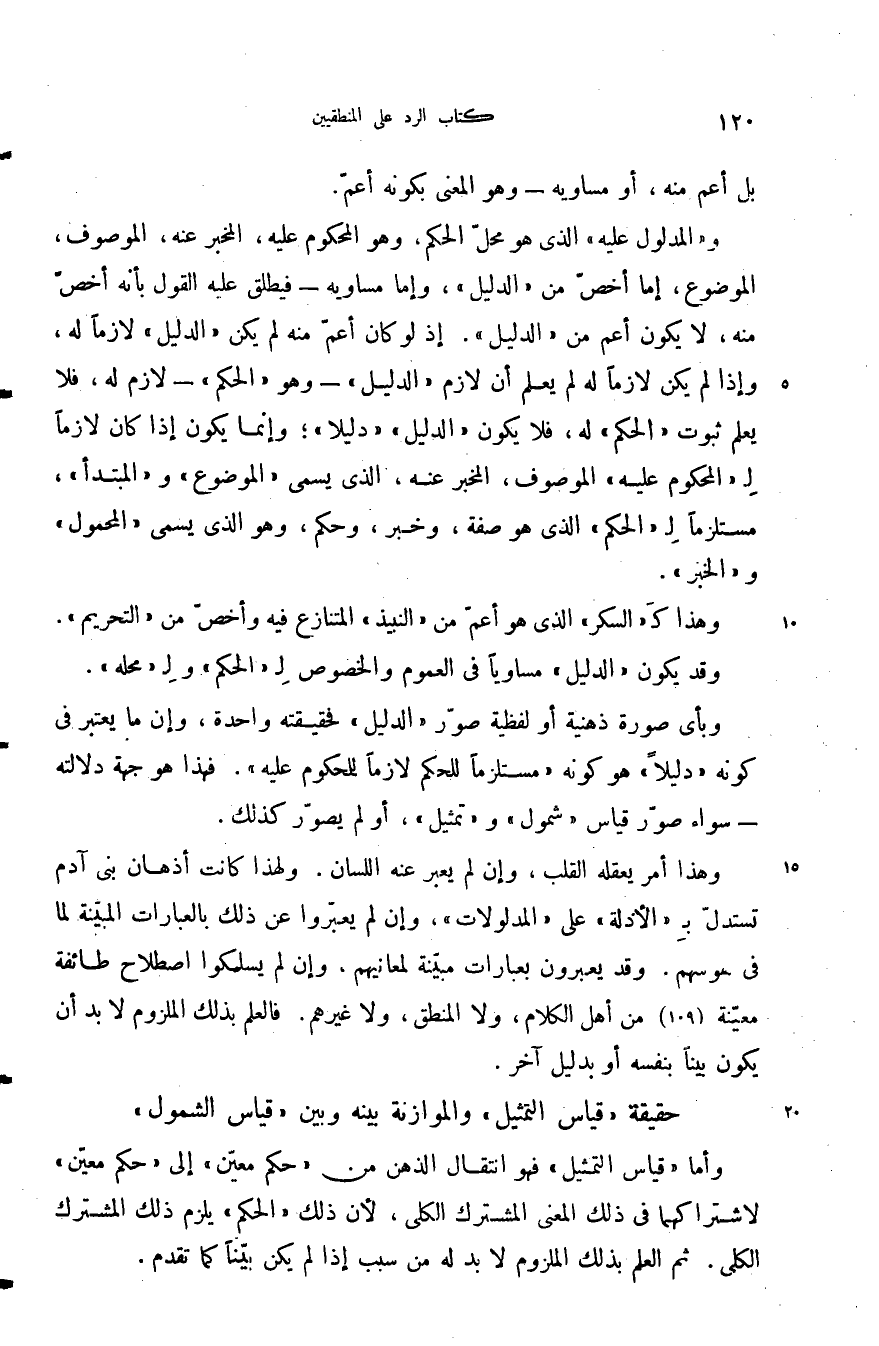 ١٢٠ كتاب الرد على المنطقيين
بل أعم منه ، أو مساويه — وهو المعنى بكونه أعمّ.
و«المدلول عليه» الذى هو محلّ الحكم، وهو المحكوم عليه، المخبر عنه، الموصوف،
الموضوع، إما أخصّ من «الدليل» ، وإما مساويه — فيطلق عليه القول بأنه أخصّ
منه، لا يكون أعم من «الدليل». إذ لو كان أعمّ منه لم يكن «الدليل» لازماً له ،
٥ وإذا لم يكن لازماً له لم يعلم أن لازم «الدليل» — وهو «الحكم» — لازم له ، فلا
يعلم ثبوت «الحكم» له، فلا يكون «الدليل» «دليلا»؛ وإنما يكون إذا كان لازماً
لِـ «المحكوم عليه» الموصوف، المخبر عنه ، الذى يسمى «الموضوع» و «المبتدأ» ،
مستلزماً لِـ «الحكم» الذى هو صفة ، وخبر ، وحكم، وهو الذى يسمى «المحمول»
و «الخبر» .
١٠ وهذا كَـ «السكر» الذى هو أعمّ من «النبيذ» المتنازع فيه وأخصّ من «التحريم» .
وقد يكون «الدليل» مساوياً فى العموم والخصوص لِـ «الحكم» و لِـ «محله» .
وبأى صورة ذهنية أو لفظية صوّر «الدليل» فحقيقته واحدة ، وإن ما يعتبر فى
كونه «دليلاً» هو كونه «مستلزماً للحكم لازماً للمحكوم عليه» . فهذا هو جهة دلالته
— سواء صوّر قياس «شمول» و «تمثيل» ، أو لم يصوّر كذلك .
١٥ وهذا أمر يعقله القلب ، وإن لم يعبر عنه اللسان . ولهذا كانت أذهان بنى آدم
تستدلّ بِـ «الأدلة» على «المدلولات» ، وإن لم يعبّروا عن ذلك بالعبارات المبيّنة لما
فى . وقد يعبرون بعبارات مبيّنة لمعانيهم . وإن لم يسلكوا اصطلاح طائفة
معيّنة (١٠٩) من أهل الكلام، ولا المنطق، ولا غيرهم. فالعلم بذلك الملزوم لا بد أن
يكون بيناً بنفسه أو بدليل آخر .
٢٠ حقيقة «قياس التمثيل» والموازنة بينه وبين «قياس الشمول»
وأما «قياس التمثيل» فهو انتقال الذهن من «حكم معيّن» إلى «حكم معيّن»
لاشتراكهما فى ذلك المعنى المشترك الكلى ، لأن ذلك «الحكم» يلزم ذلك المشترك
الكلى . ثم العلم بذلك الملزوم لا بد له من سبب إذا لم يكن بيّناً كما تقدم .